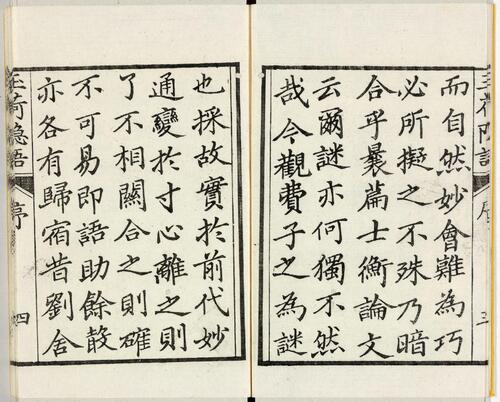 而自然妙會難為巧
必所擬之不殊乃暗
合乎曩篇士衡論文
云爾謎亦何獨不然
哉今觀費子之為謎
也採故實於前代妙
通變於寸心離之則
了不相關合之則確
不可易即語助餘散
亦各有歸宿昔劉舍
玉荷隱語
序
四